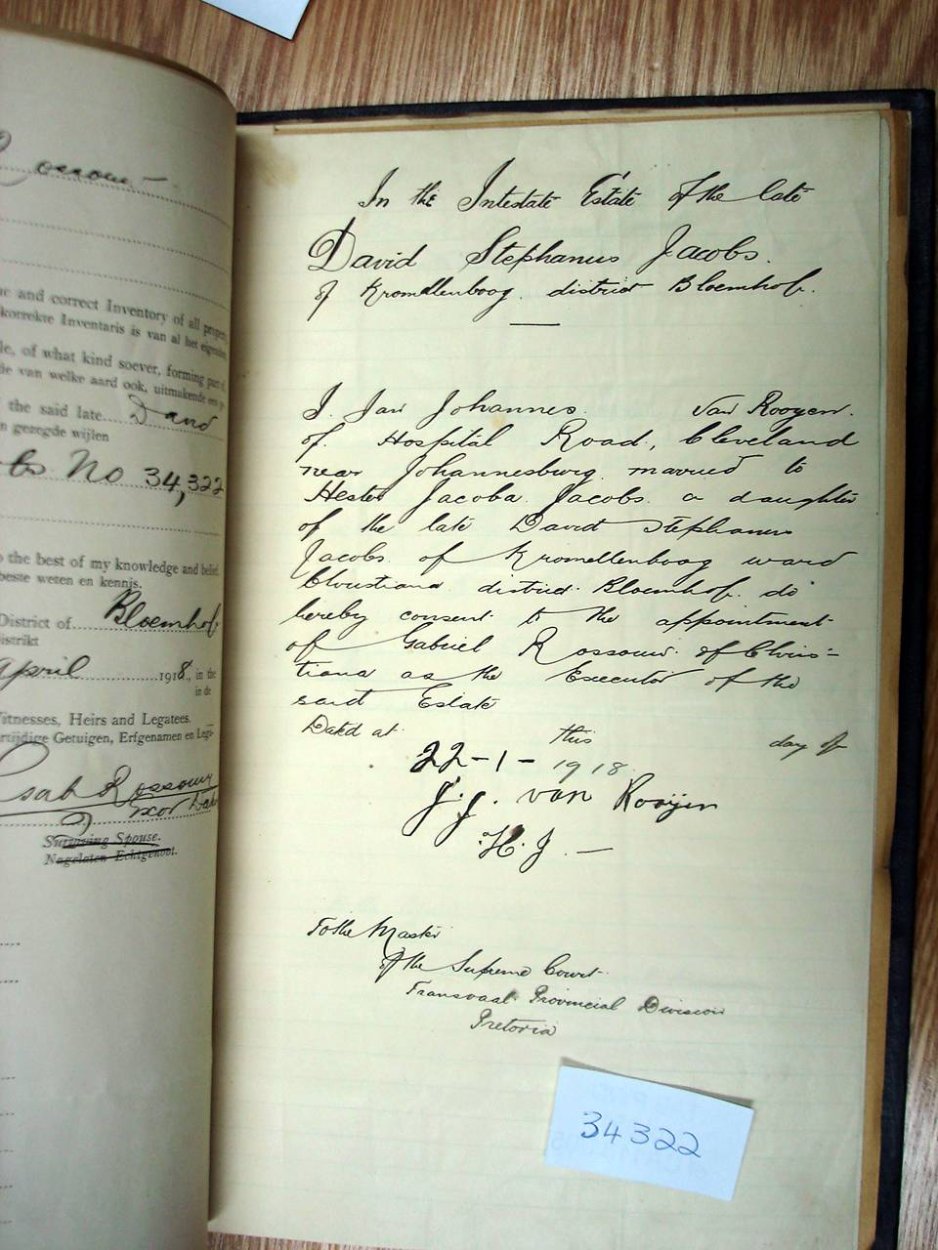 Rossouw
ne and correct Inventory of all
korrekte Inventaris is van al het
le, of what kind soever, forming part
die van welke aard ook, uitmakende
the said late...David
n gezegde wijlen
No 34,322
o the best of my knowledge and belief.
beste weten en kennis.
District of...Bloemhof
istrikt
April...1918, in the
in de
Witnesses, Heirs and Legatees.
Getuigen, Erfgenamen en
Rossouw
Surviving Spouse.
Nagelaten Echtgenoot.
In the Intestate Estate of the late
David Stephanus Jacobs.
of Kromellenboog district Bloemhof.
I. Jan Johannes. van Rooyen.
of Hospital Road, Cleveland
near Johannesburg married to
Hester Jacoba Jacobs a daughter
of the late David Stephanus
Jacobs of Kromellenboog ward
Christiana district Bloemhof do
hereby consent to the appointment
of Gabriel Rossouw of Chris=
tiana as the Executor of the
said Estate
Dated at this day of
22-1-1918
J.J. van Rooijen
H.J.—
To the Master
of the Supreme Court
Transvaal Provincial Division
Pretoria
34322